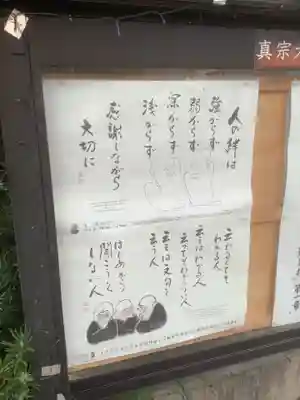 真宗
人の絆は
強からず
弱からず
深からず
浅からず
感謝しながら
大切に
云われなくても
わかる人
云えばわかる人
云ってもわからない人
云えば文句を
云う人
はじめから
聞こうと
しない人